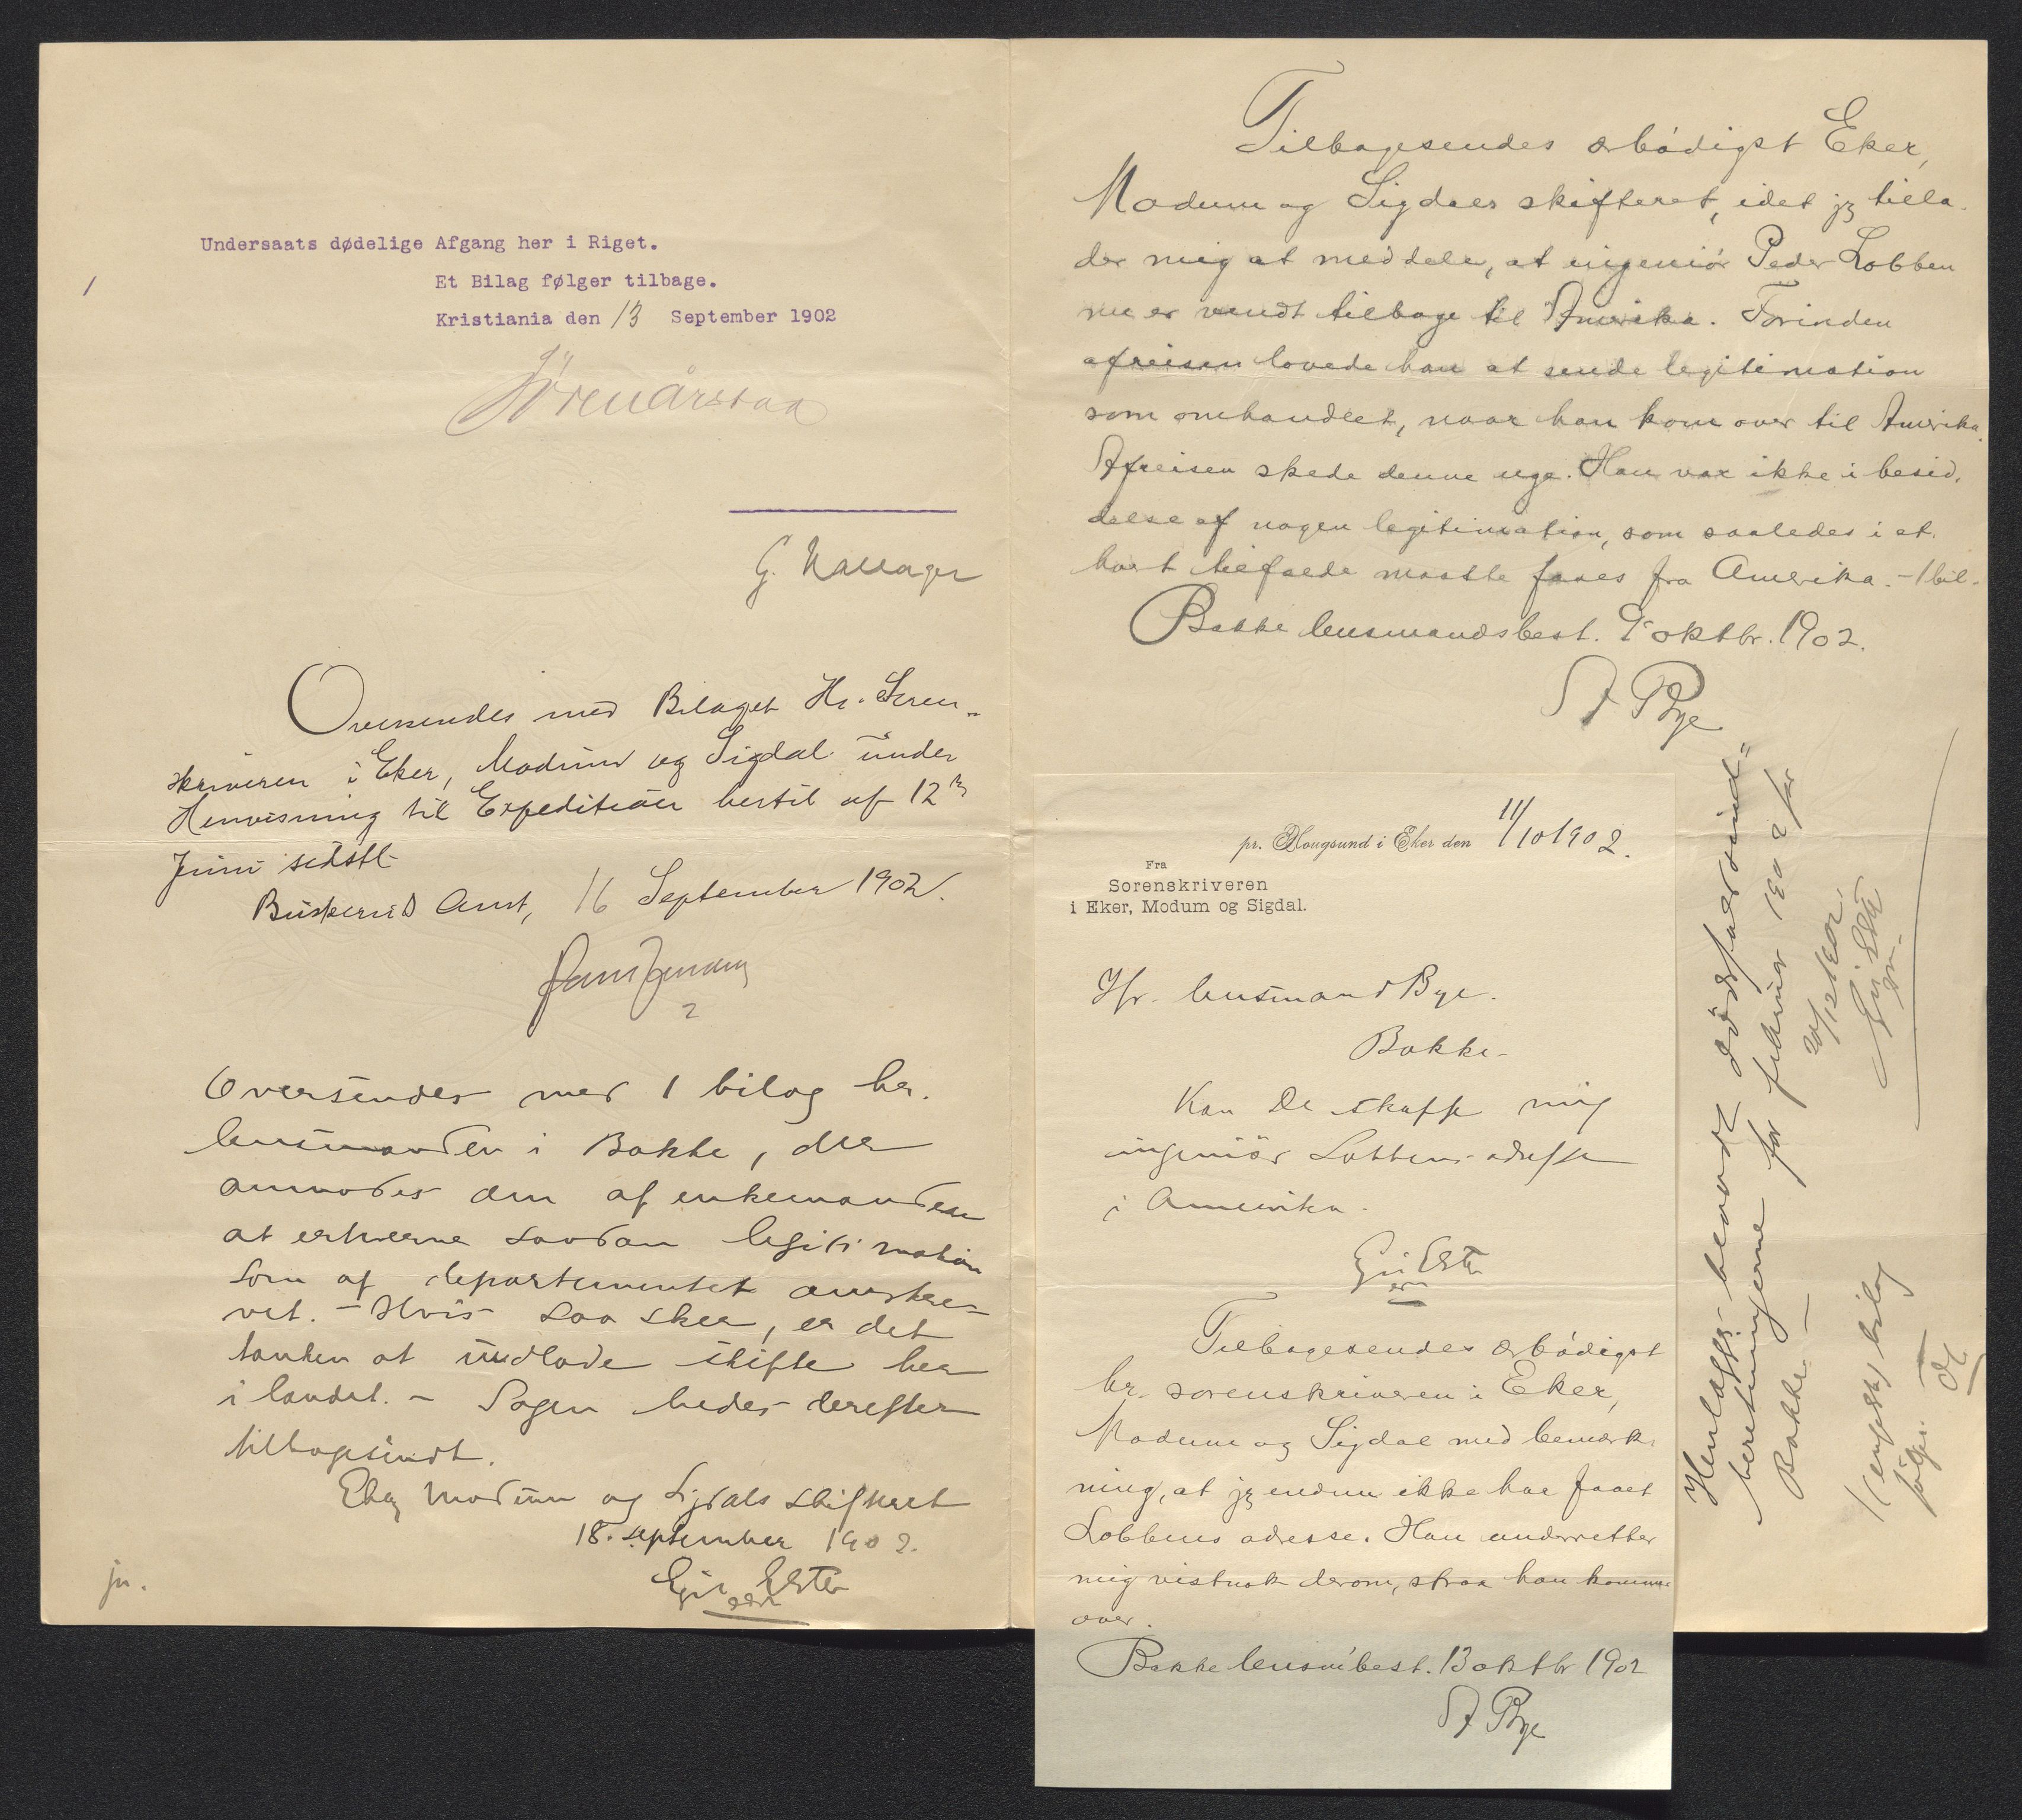 Undersaats dødelige Afgang her i Riget.
Et Bilag følger tilbage.
Kristiania den 13 September 1902
Oversendes med Bilaget Hr. Soren-
skriveren i Eker, Modum og Sigdal under
Henvisning til Expedition hertil af 12te
Juni sidstl.
Buskerud Amt, 16 September 1902.
Oversendes med 1 bilag hr.
lensmanden i Bakke, der
anmodes om af enkemanden
at erhverve saadan legitimation
som af departementet anordne-
vet. - Hvis saa sker, er det
tanken at indlade skifte her
i landet. - Sagen bedes derefter
tilbagesendt.
Eker Modum og Sigdals skifteret
18. september 1902.
jn.
Tilbagesendes ærbødigst Eker,
Modum og Sigdals skifteret, idet jeg tilla-
der mig at meddele, at ingeniør Peder Lobben
nu er vendt tilbage til Amerika. Forinden
afreisen lovede han at sende legitimation
som omhandlet, naar han kom over til Amerika.
Afreisen skede denne uge. Han var ikke i besid-
delse af nogen legitimation, som saaledes i et-
hvert tilfælde maatte faaes fra Amerika. - 1 bil.
Bakke lensmandsbest. 9 oktbr. 1902.
A Bye
pr. Hougsund i Eker den 11/10 1902.
Fra
Sorenskriveren
i Eker, Modum og Sigdal.
Hr. lensmand Bye.
Bakke.
Kan De skaffe mig
ingeniør Lobbens adresse
i Amerika.
Tilbagesendes ærbødigst
hr. sorenskriveren i Eker,
Modum og Sigdal med bemærk-
ning, at jeg endnu ikke har faaet
Lobbens adresse. Han underretter
mig vistnok derom, straa han kommer
over.
Bakke lensm.best. 13 oktbr 1902
A Bye
Henlægges beroende dødsfald
beretningerne for februar 1902 for
Bakke
20/12 1902.
1 engelsk bilag
følger.